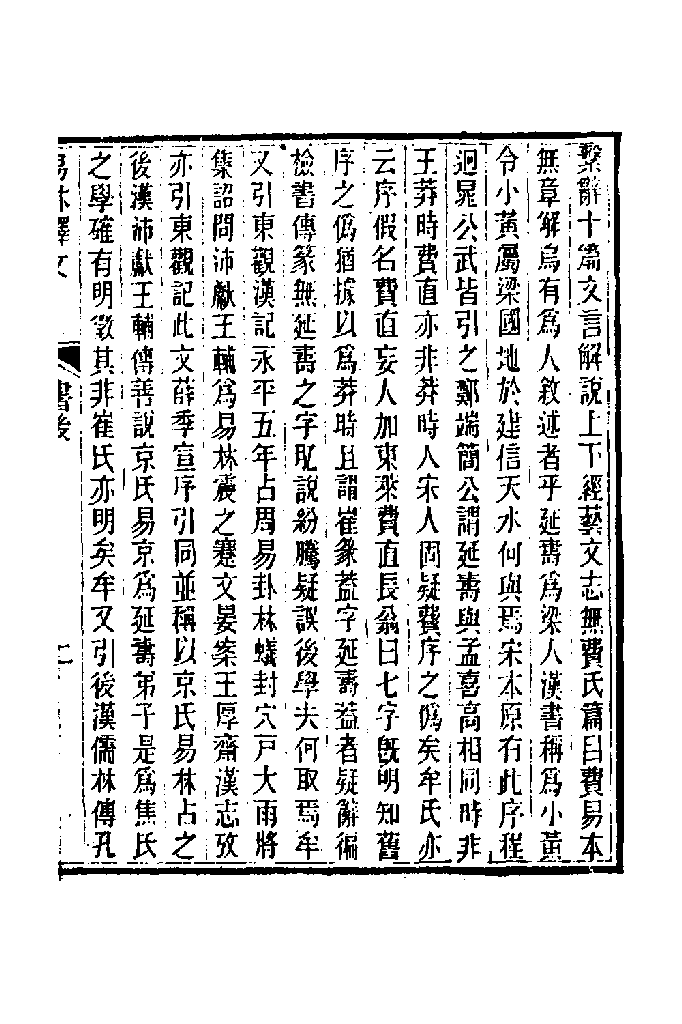 繫辭十篇文言解說上下經藝文志無費氏篇曰費易本
無章解烏有爲人敘述者乎延壽爲梁人漢書稱爲小黃
令小黃屬梁國地於建信天水何與焉宋本原有此序程
迥晁公武皆引之鄭端簡公謂延壽與孟喜高相同時非
王莽時費直亦非莽時人宋人固疑費序之僞矣牟氏亦
云序假名費直妄人加東萊費直長翁曰七字旣明知舊
序之僞猶據以爲莽時且謂崔篆葢字延壽葢者疑辭徧
檢書傳篆無延壽之字臆說紛騰疑誤後學夫何取焉牟
又引東觀漢記永平五年占周易卦林蟻封穴戸大雨將
集詔問沛獻王輔爲易林震之蹇文晏案王厚齋漢志攷
亦引東觀記此文薛季宣序引同並稱以京氏易林占之
後漢沛獻王輔傳善說京氏易京爲延壽弟子是爲焦氏
之學確有明徵其非崔氏亦明矣牟又引後漢儒林傳孔
易林釋文
書後